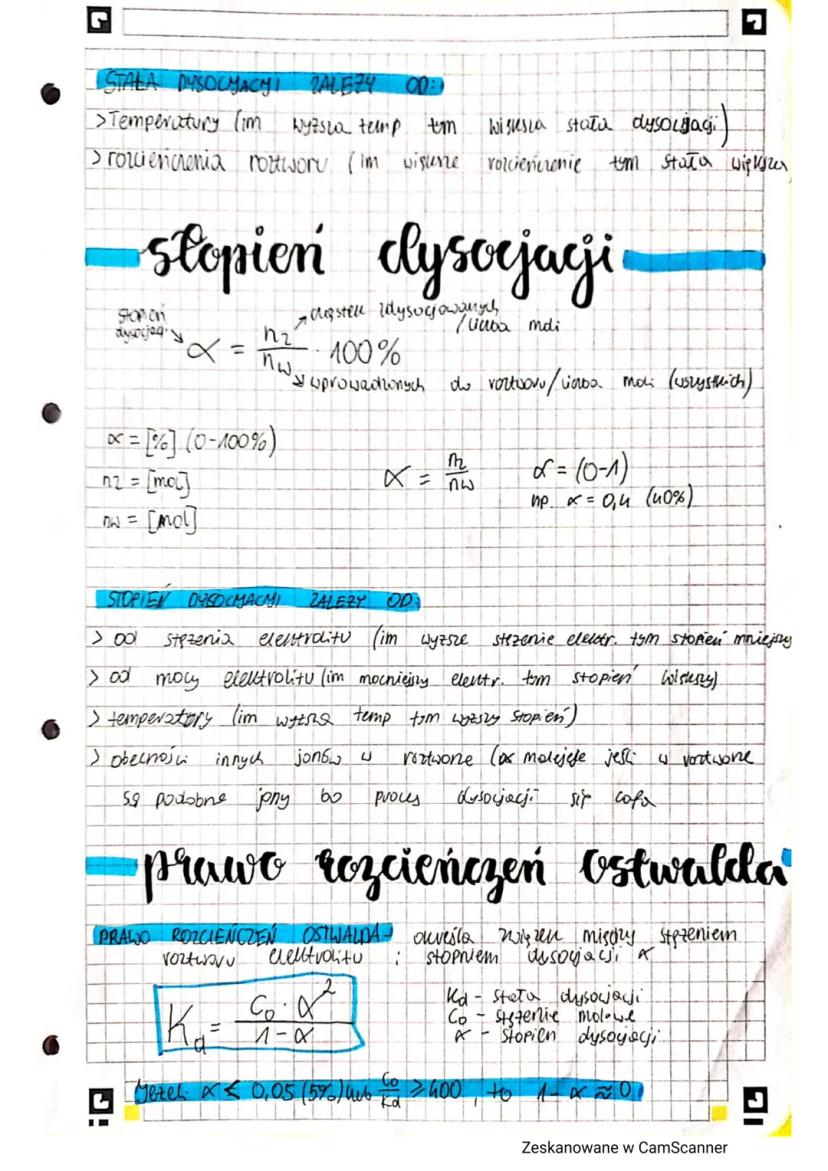 STAŁA DYSOCJACJI ZALEŻY OD:
> Temperatury (im wyższa temp tym większa stała dysocjacji)
> rozcieńczenia roztworu (im większe rozcieńczenie tym stała większa
stopień dysocjacji
stopień dysocjacji
cząstek zdysocjowanych /liczba moli
α = nz/nw · 100%
wprowadzonych do roztworu/liczba moli (wszystkich)
α = [%] (0-100%)
nz = [mol]
nw = [mol]
α = nz/nw
α = (0-1)
np. α = 0,4 (40%)
STOPIEŃ DYSOCJACJI ZALEŻY OD:
> od stężenia elektrolitu (im wyższe stężenie elektr. tym stopień mniejszy
> od mocy elektrolitu (im mocniejszy elektr. tym stopień większy)
> temperatury (im wyższa temp tym wyższy stopień)
> obecności innych jonów w roztworze (α maleje jeśli w roztworze
są podobne jony bo proces dysocjacji się cofa
prawo rozcieńczeń Ostwalda
PRAWO ROZCIEŃCZEŃ OSTWALDA → określa związek między stężeniem
roztworu elektrolitu i stopniem dysocjacji α
Kd = C₀ · α² / 1 - α
Kd - stała dysocjacji
C₀ - stężenie molowe
α - stopień dysocjacji
Jeżeli α ≤ 0,05 (5%) lub C₀/Kd ≥ 400, to 1 - α ≈ 0
Zeskanowane w CamScanner